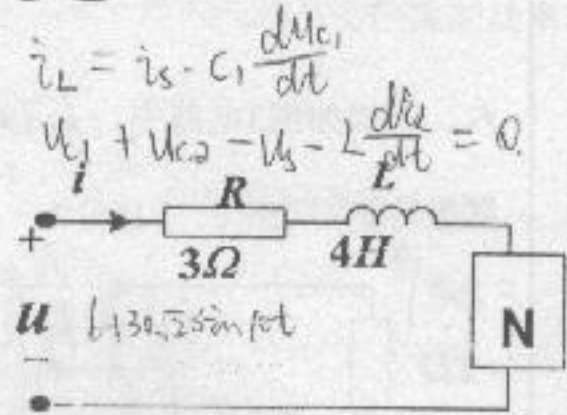 i_L = i_s - C_1 \frac{du_{C1}}{dt}
u_{C1} + u_{C2} - u_s - L \frac{di_L}{dt} = 0
i R L
+ 3Ω 4H
u N
—